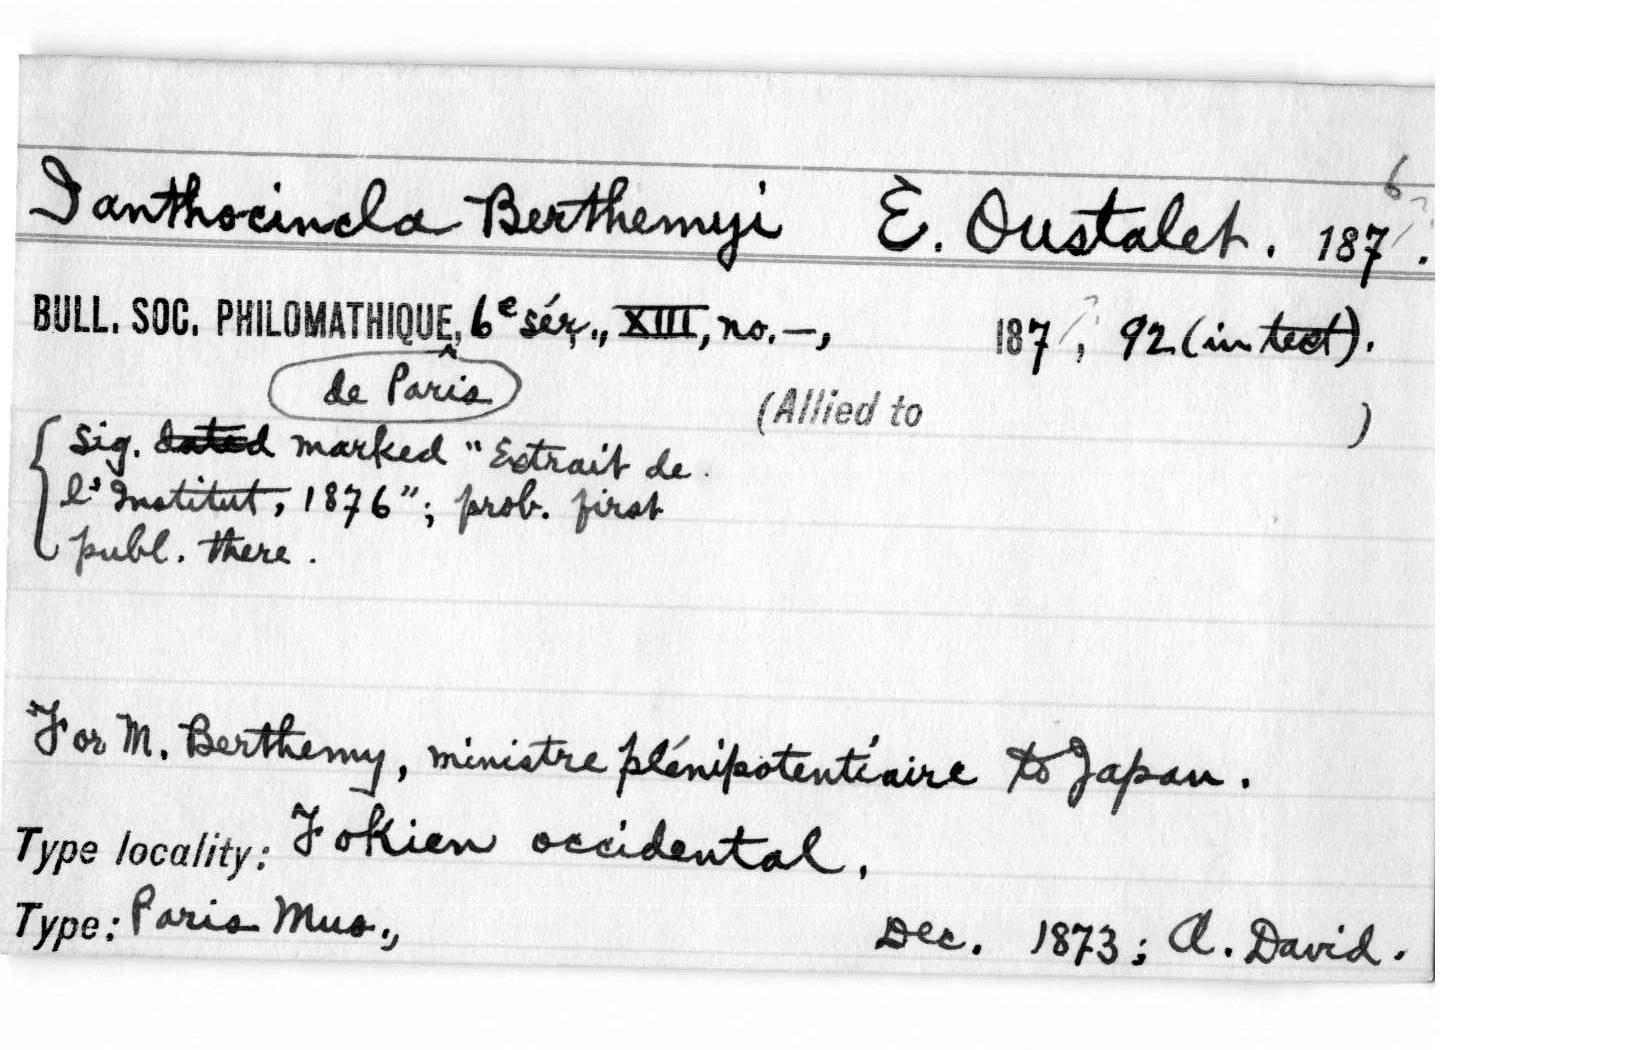 Ianthocincla Berthemyi E. Oustalet. 187 6?.
BULL. SOC. PHILOMATHIQUE, 6e sér., XIII, no. —, 187 ?, 92 (in text).
de Paris
(Allied to )
Sig. dated marked "Extrait de
l'Institut, 1876"; prob. first
publ. there.
For M. Berthemy, ministre plénipotentiaire to Japan.
Type locality: Fokien occidental,
Type: Paris Mus., Dec. 1873; A. David.